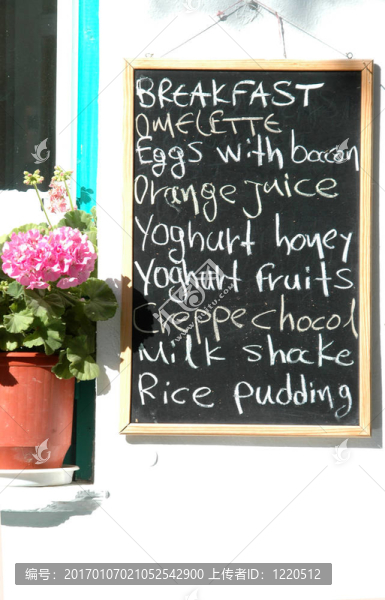 BREAKFAST
OMELETTE
Eggs with bacoan
Orange juice
Yoghurt honey
Yoghurt fruits
Creppe chocol
Milk shake
Rice pudding
编号：20170107021052542900 上传者ID：1220512